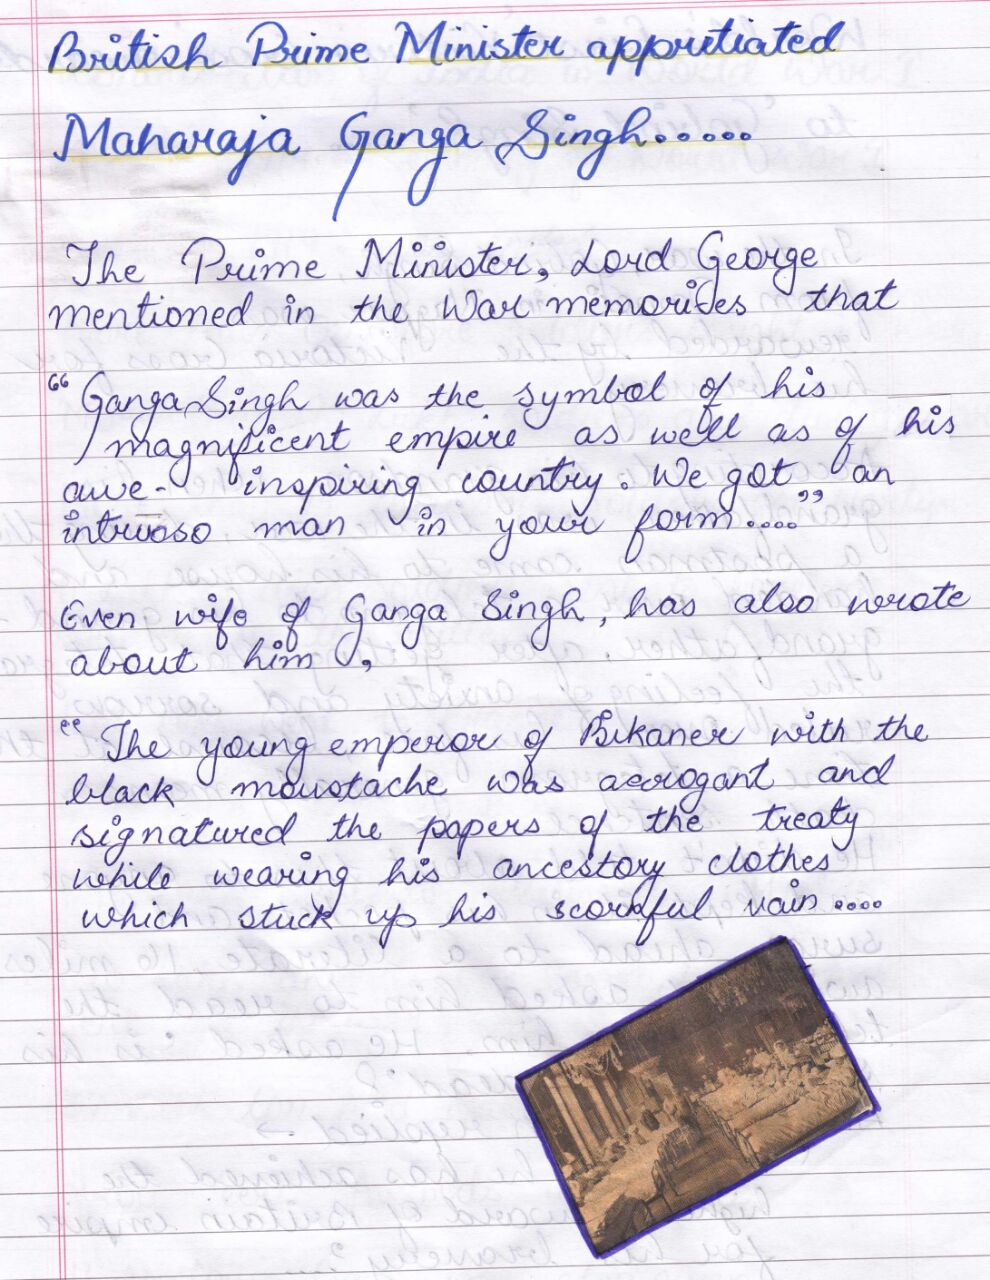 British Prime Minister appritiated
Maharaja Ganga Singh.....
The Prime Minister, Lord George
mentioned in the War memories that
"Ganga Singh was the symbol of his
magnificent empire as well as of his
awe- inspiring country. We got an
intruoso man in your form...."
Even wife of Ganga Singh, has also wrote
about him,
"The young emperor of Bikaner with the
black moustache was aerogant and
signatured the papers of the treaty
while wearing his ancestory clothes
which stuck up his scornful vain....